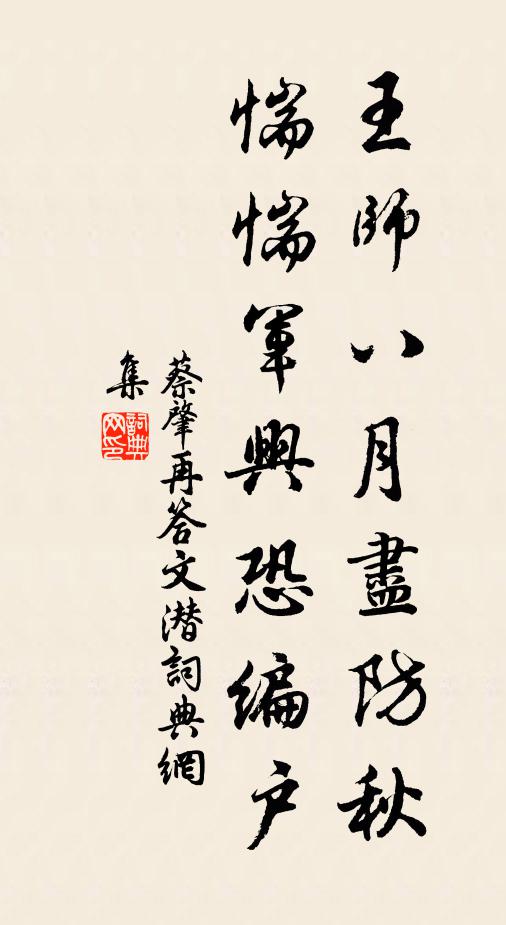 王師八月盡防秋
惴惴軍興恐編户
蔡肇再答文潛詞典網
集
詞典網印